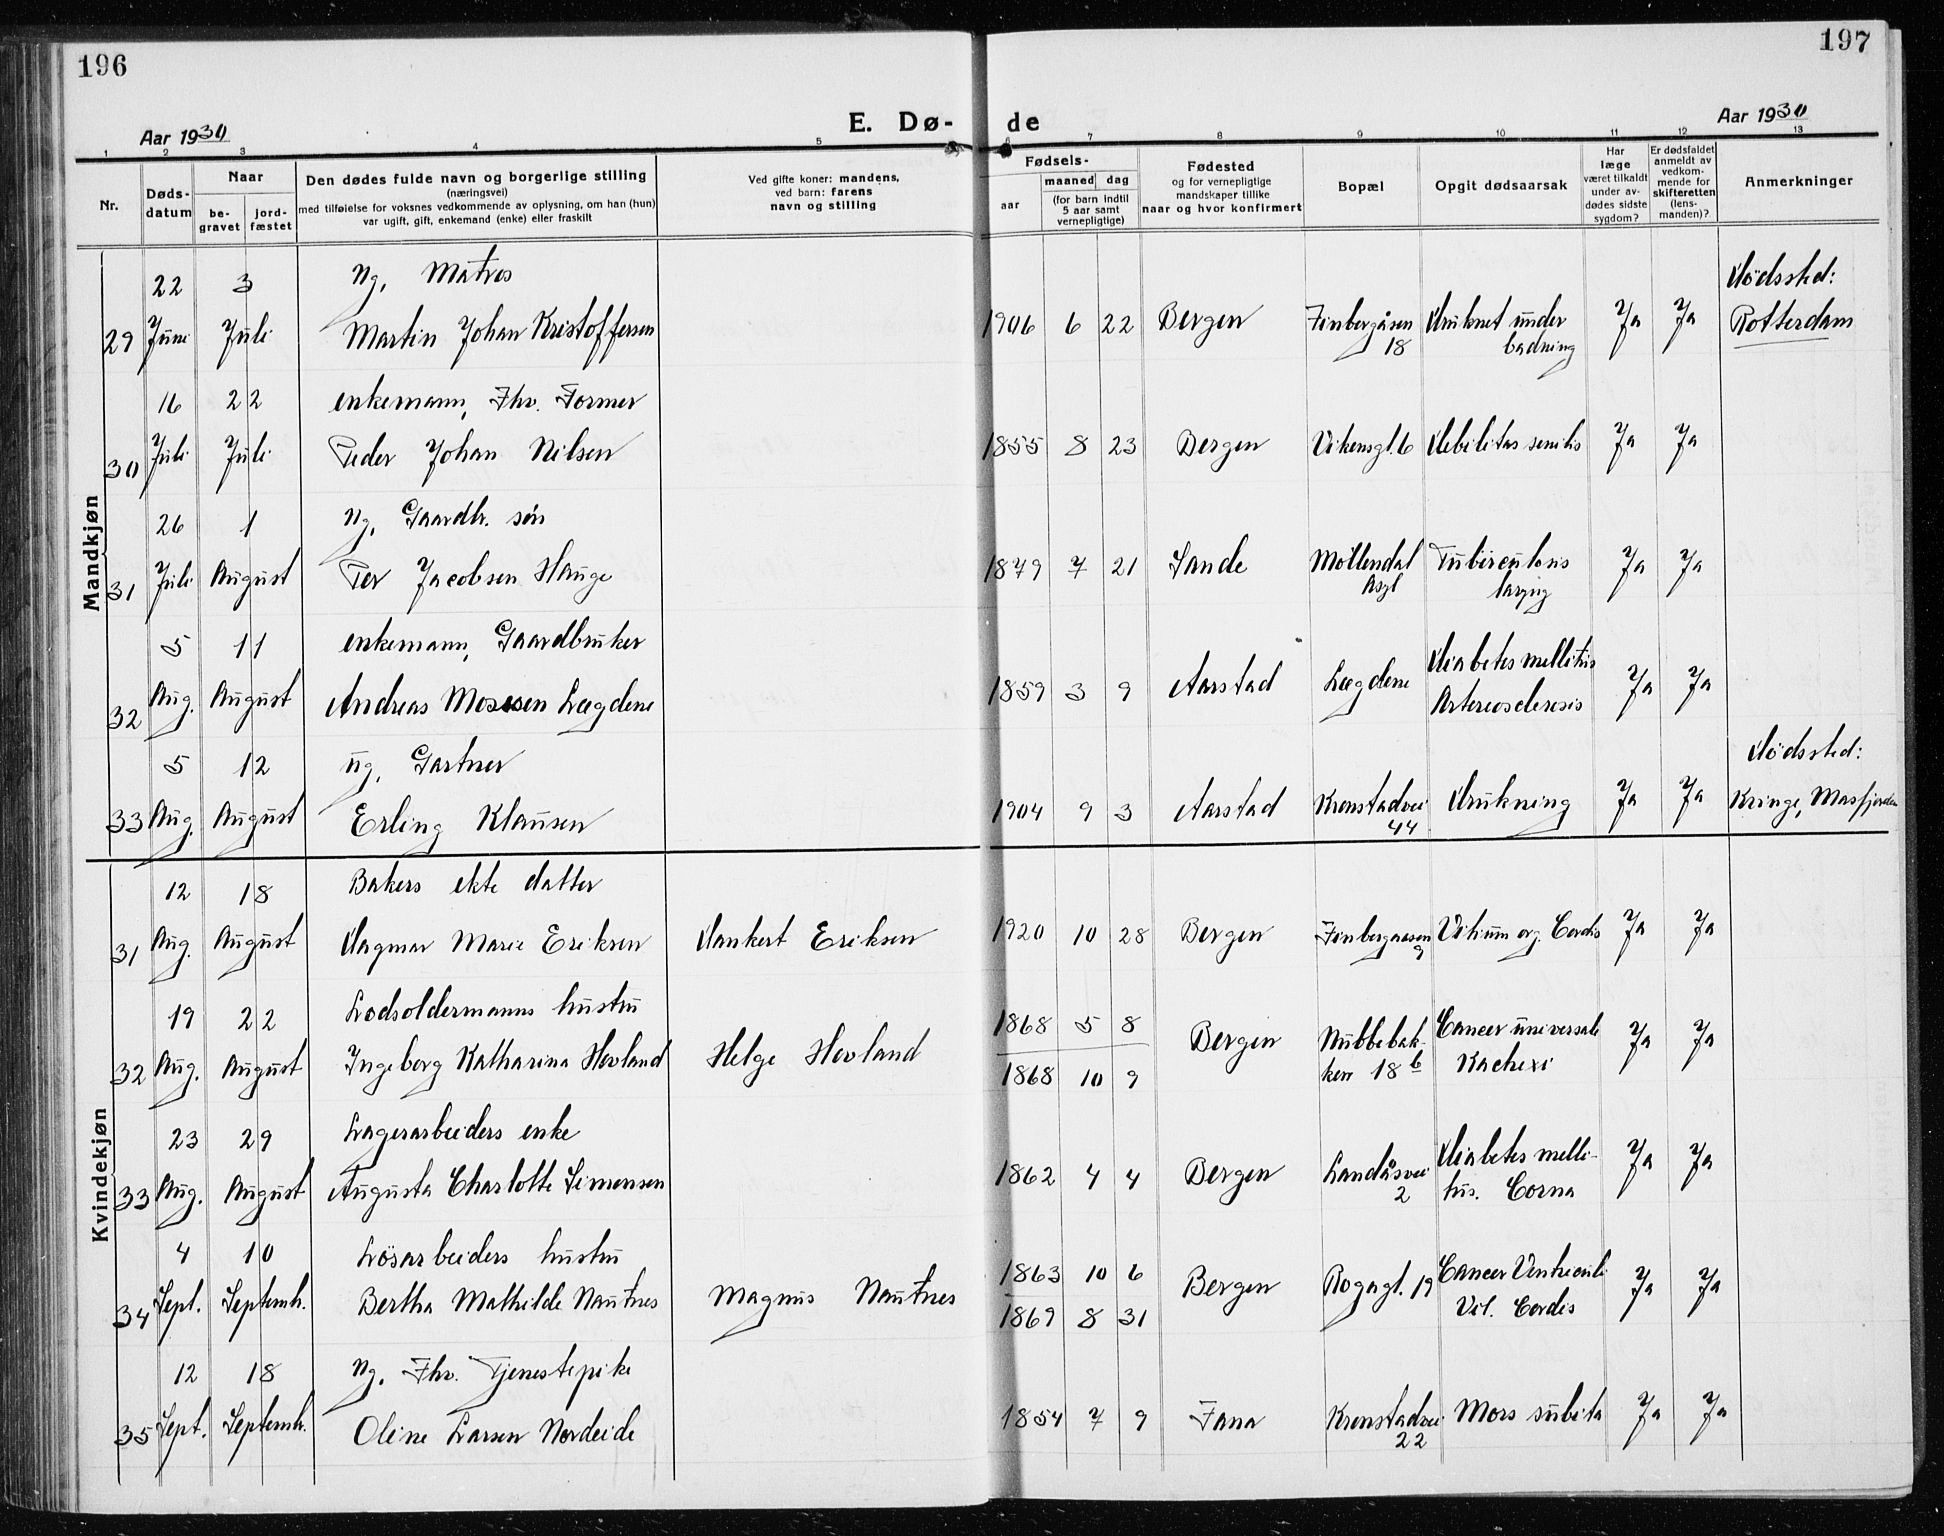 196
197
Aar 1930
E. Dø-
de
Aar 1930
1 2 3 4 5 6 7 8 9 10 11 12 13
Nr.
Døds-
datum
Naar
be-
gravet
jord-
fæstet
Den dødes fulde navn og borgerlige stilling
(næringsvei)
med tilføielse for voksnes vedkommende av oplysning, om han (hun)
var ugift, gift, enkemand (enke) eller fraskilt
Ved gifte koner: mandens,
ved barn: farens
navn og stilling
Fødsels-
aar
maaned
dag
(for barn indtil
5 aar samt
vernepligtige)
Fødested
og for vernepligtige
mandskaper tillike
naar og hvor konfirmert
Bopæl
Opgit dødsaarsak
Har
læge
været tilkaldt
under av-
dødes sidste
sygdom?
Er dødsfaldet
anmeldt av
vedkom-
mende for
skifteretten
(lens-
manden)?
Anmerkninger
Mandkjøn
22 3 Ug, Matros Dødssted:
29 Juni Juli Martin Johan Kristoffersen 1906 6 22 Bergen Finbergåsen Druknet under Ja Ja Rotterdam
18 badning
16 22 enkemann, Fhv. Former
30 Juli Juli Peder Johan Nilsen 1855 8 23 Bergen Vikensgt. 6 Debilitas senilis Ja Ja
26 1 Ug, Gaardbr. søn
31 Juli August Per Jacobsen Hauge 1879 7 21 Sande Møllendal Tuberculosis Ja Ja
Asyl laryng
5 11 enkemann, Gaardbruker Diabetes mellitus
32 Aug. August Andreas Mossen Lægdene 1859 3 9 Aarstad Lægdene Arteriosclerosis Ja Ja
5 12 ug, Gartner Dødssted:
33 Aug. August Erling Klausen 1904 9 3 Aarstad Kronstadvei Drukning Ja Ja Kringe, Masfjorden
44
Kvindekjøn
12 18 Bakers ekte datter
31 Aug. August Dagmar Marie Eriksen Dankert Eriksen 1920 10 28 Bergen Finbergaasen Vitium org. Cordis Ja Ja
9
19 22 Lodsoldermanns hustru 1868 5 8 Cancer universale
32 Aug. August Ingeborg Katharina Hovland Helge Hovland 1868 10 9 Bergen Nubbebak- Kachexi Ja Ja
ken 18 b
23 29 Lagerarbeiders enke Diabetes melli-
33 Aug. August Augusta Charlotte Simonsen 1862 4 4 Bergen Landåsvei tus. Coma Ja Ja
2
4 10 Løsarbeiders hustru 1863 10 6 Cancer Ventriculi
34 Sept. Septemb. Bertha Mathilde Nautnes Magnus Nautnes 1869 8 31 Bergen Rogagt. 19 Vit. Cordis Ja Ja
12 18 Ug. Fhv. Tjenestepike
35 Sept. Septemb. Oline Larsen Nordeide 1854 7 9 Fana Kronstadvei Mors subita Ja Ja
22